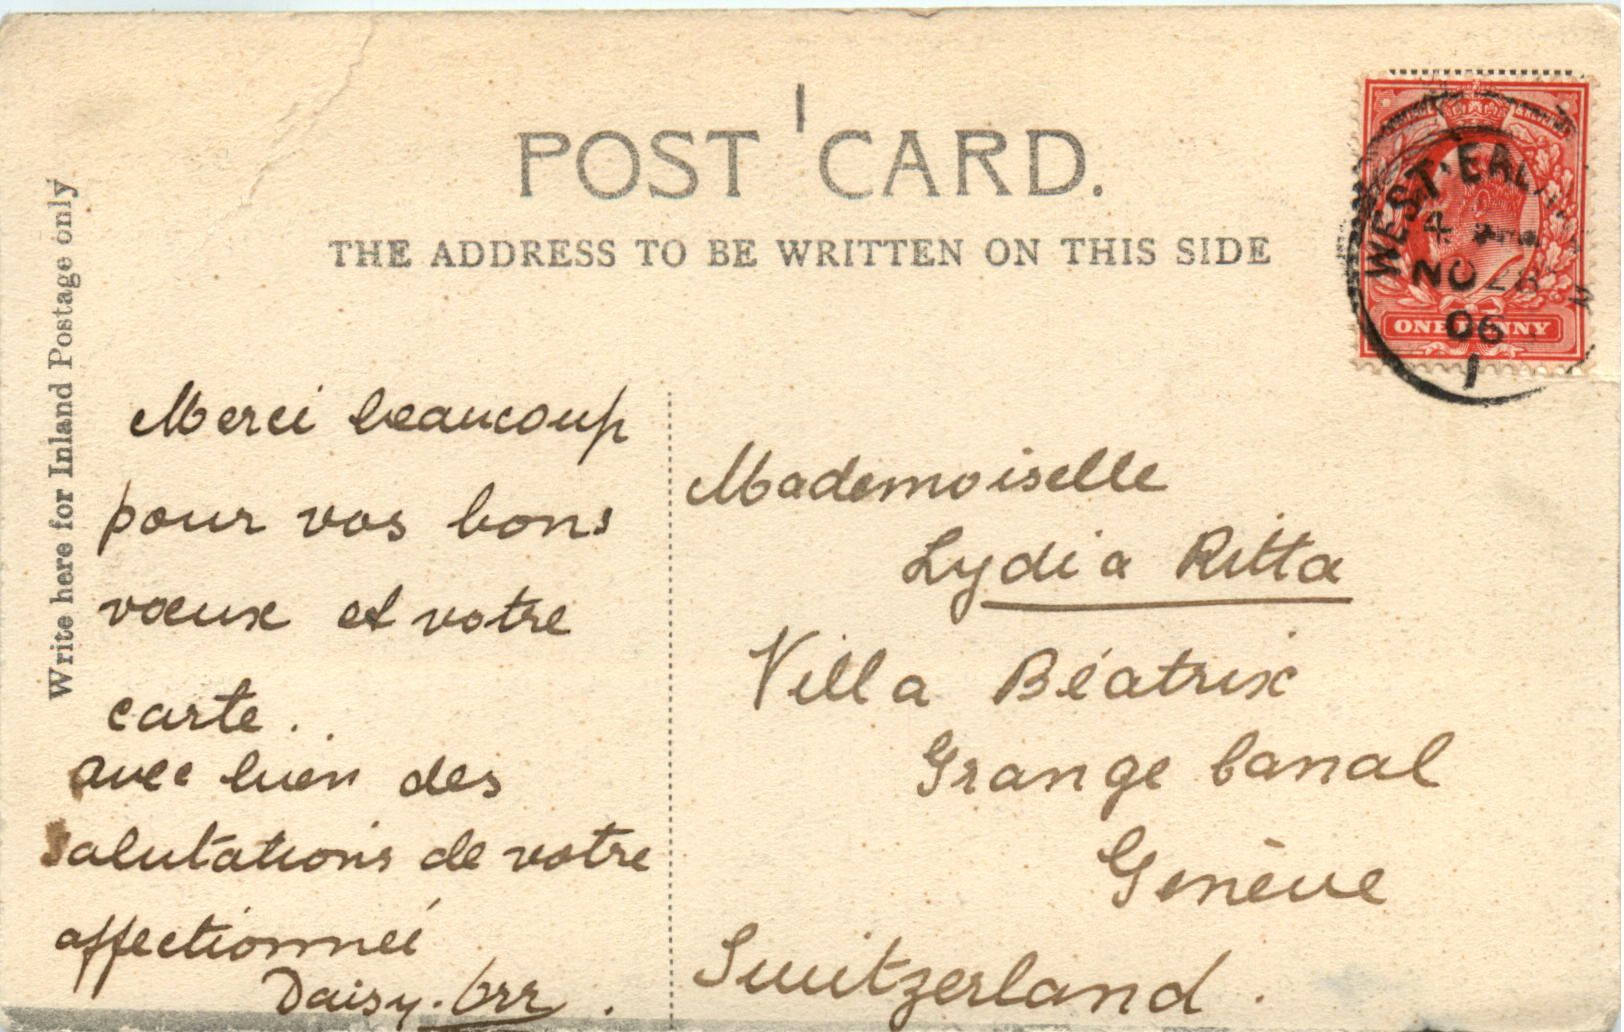 POST CARD.
THE ADDRESS TO BE WRITTEN ON THIS SIDE
Write here for Inland Postage only
WEST EAL
4
NO 28
06
1
ONE PENNY
Merci beaucoup
pour vos bons
vœux et votre
carte.
avec bien des
salutations de votre
affectionneé
Daisy. Orr.
Mademoiselle
Lydia Ritta
Villa Béatrix
Grange Canal
Genève
Switzerland.